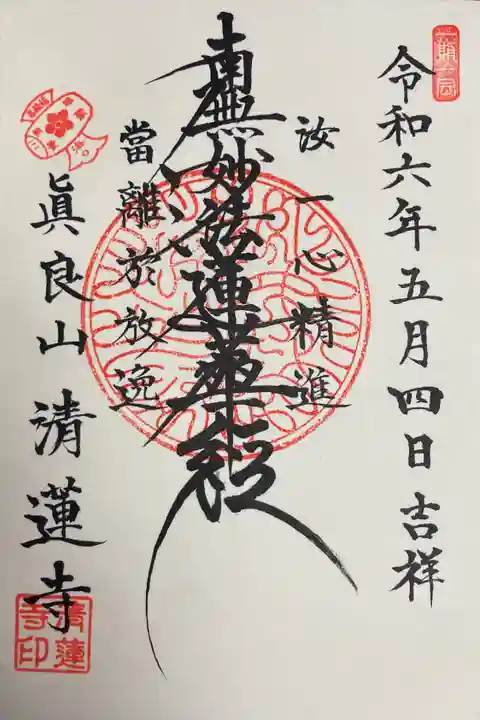 令和六年五月四日吉祥
汝一心精進
南無妙法蓮華経
當離於放逸
眞良山 清蓮寺
清蓮寺印